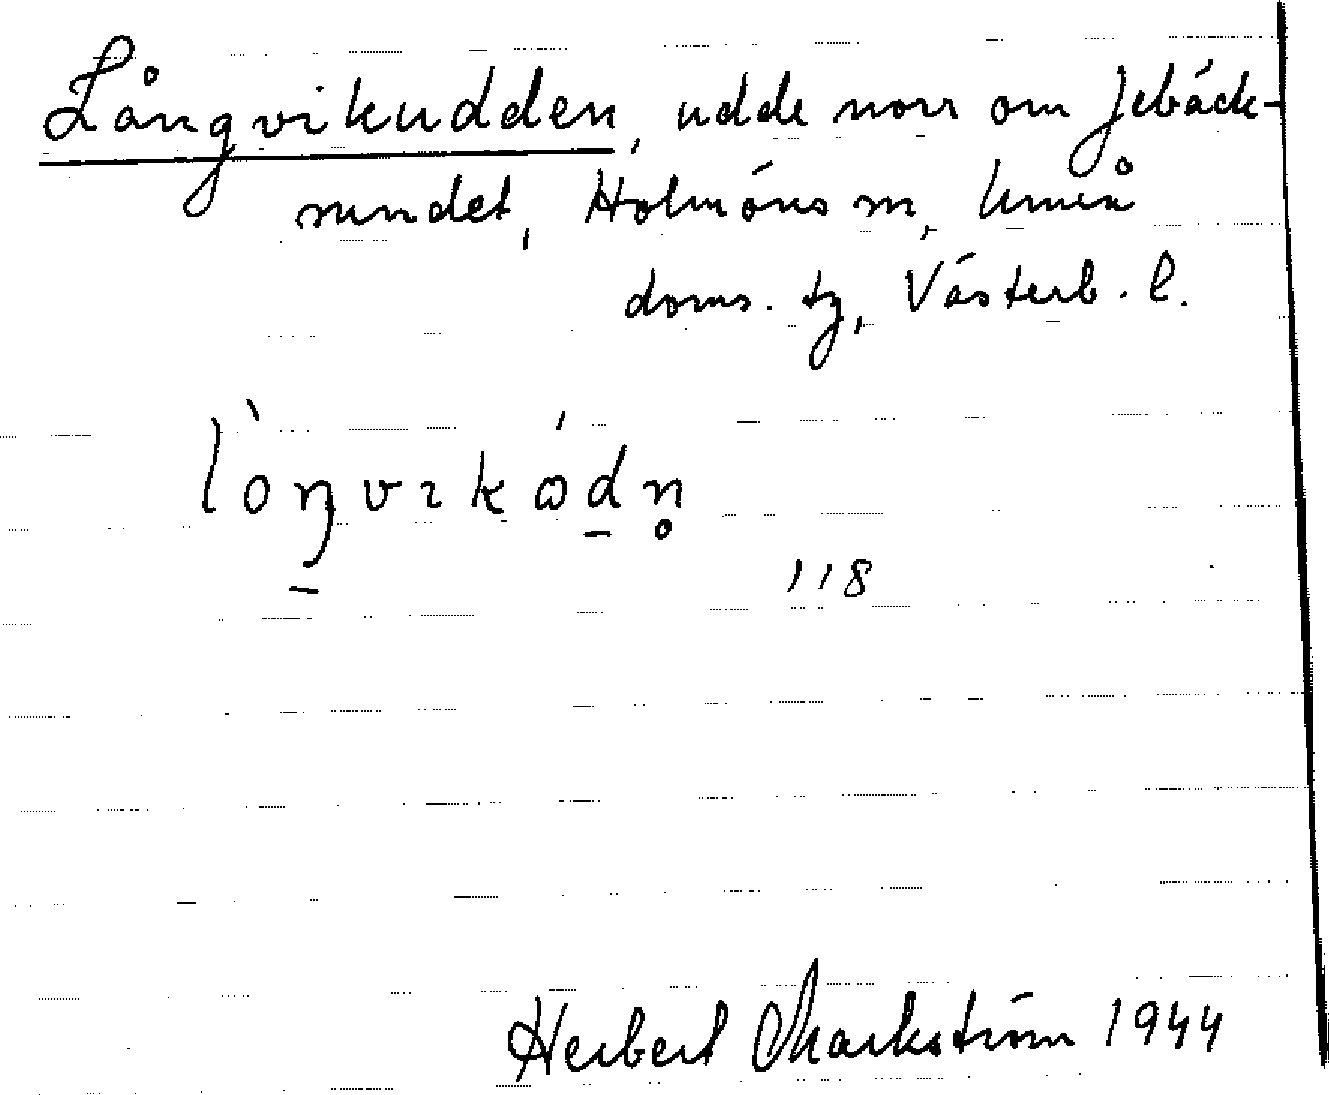 Långvikudden, udde norr om Jebäck-
sundet, Holmöns sn, Umeå
doms. tg, Västerb. l.
lò̀ŋvɪkódn̥
118
Herbert Markström 1944